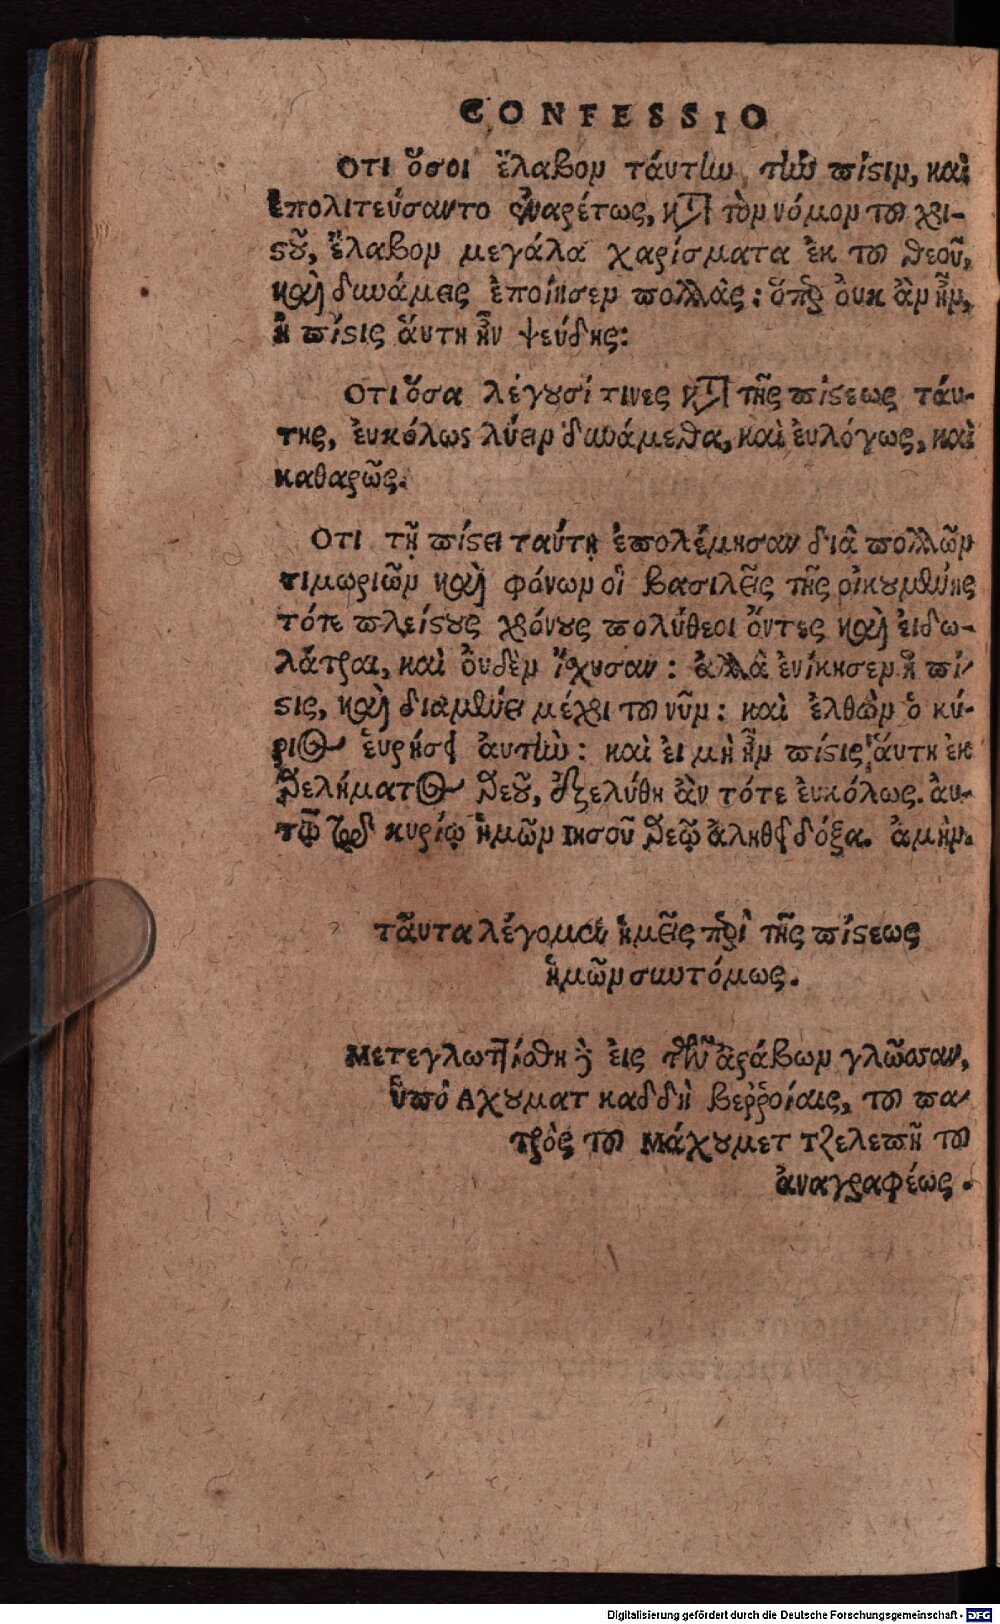 CONFESSIO
Οτι ὅσοι ἔλαβον τάυτην τὴν πίστιν, καὶ
ἐπολιτεύσαντο ἐναρέτως, κατὰ τὸν νόμον τοῦ χρι-
στοῦ, ἔλαβον μεγάλα χαρίσματα ἐκ τοῦ θεοῦ,
καὶ δυνάμεις ἐποίησεν πολλὰς: ὅπερ ὀυκ ἂν ἦν,
ἢ πίστις ἅυτη ἦν ψεύδης:
Οτι ὅσα λέγουσί τινες κατὰ τῆς πίστεως τάυ-
της, ἐυκόλως λύειν δυνάμεθα, καὶ ἐυλόγως, καὶ
καθαρῶς.
Οτι τῇ πίστει ταύτῃ ἐπολέμησαν διὰ πολλῶν
τιμωριῶν καὶ φόνων οἱ βασιλεῖς τῆς οἰκουμένης
τότε πλείστους χρόνους πολύθεοι ὄντες καὶ ἐιδω-
λάτραι, καὶ ὀυδὲν ἴχυσαν: ἀλλὰ ἐνίκησεν ἡ πί-
στις, καὶ διαμένει μέχρι τοῦ νῦν: καὶ ἐλθὼν ὁ κύ-
ριος ἑυρήσει ἀυτὴν: καὶ ἐι μὴ ἦν πίστις ἅυτη ἐκ
θελήματος θεοῦ, ἐξελύθη ἂν τότε ἐυκόλως. ἀυ-
τῷ κυρίῳ ἡμῶν Ιησοῦ θεῷ ἀληθεῖ δόξα. ἀμήν.
τᾶυτα λέγομεν ἡμεῖς περὶ τῆς πίστεως
ἡμῶν συντόμως.
Μετεγλωττίσθη δὲ ἐις τὴν ἀράβων γλῶσσαν,
ὑπὸ Αχουματ καδδῆ βεῤῥοίαις, τοῦ πα-
τρὸς τοῦ Μάχουμετ Τζελεπῆ τοῦ
ἀναγραφέως.
Digitalisierung gefördert durch die Deutsche Forschungsgemeinschaft - DFG